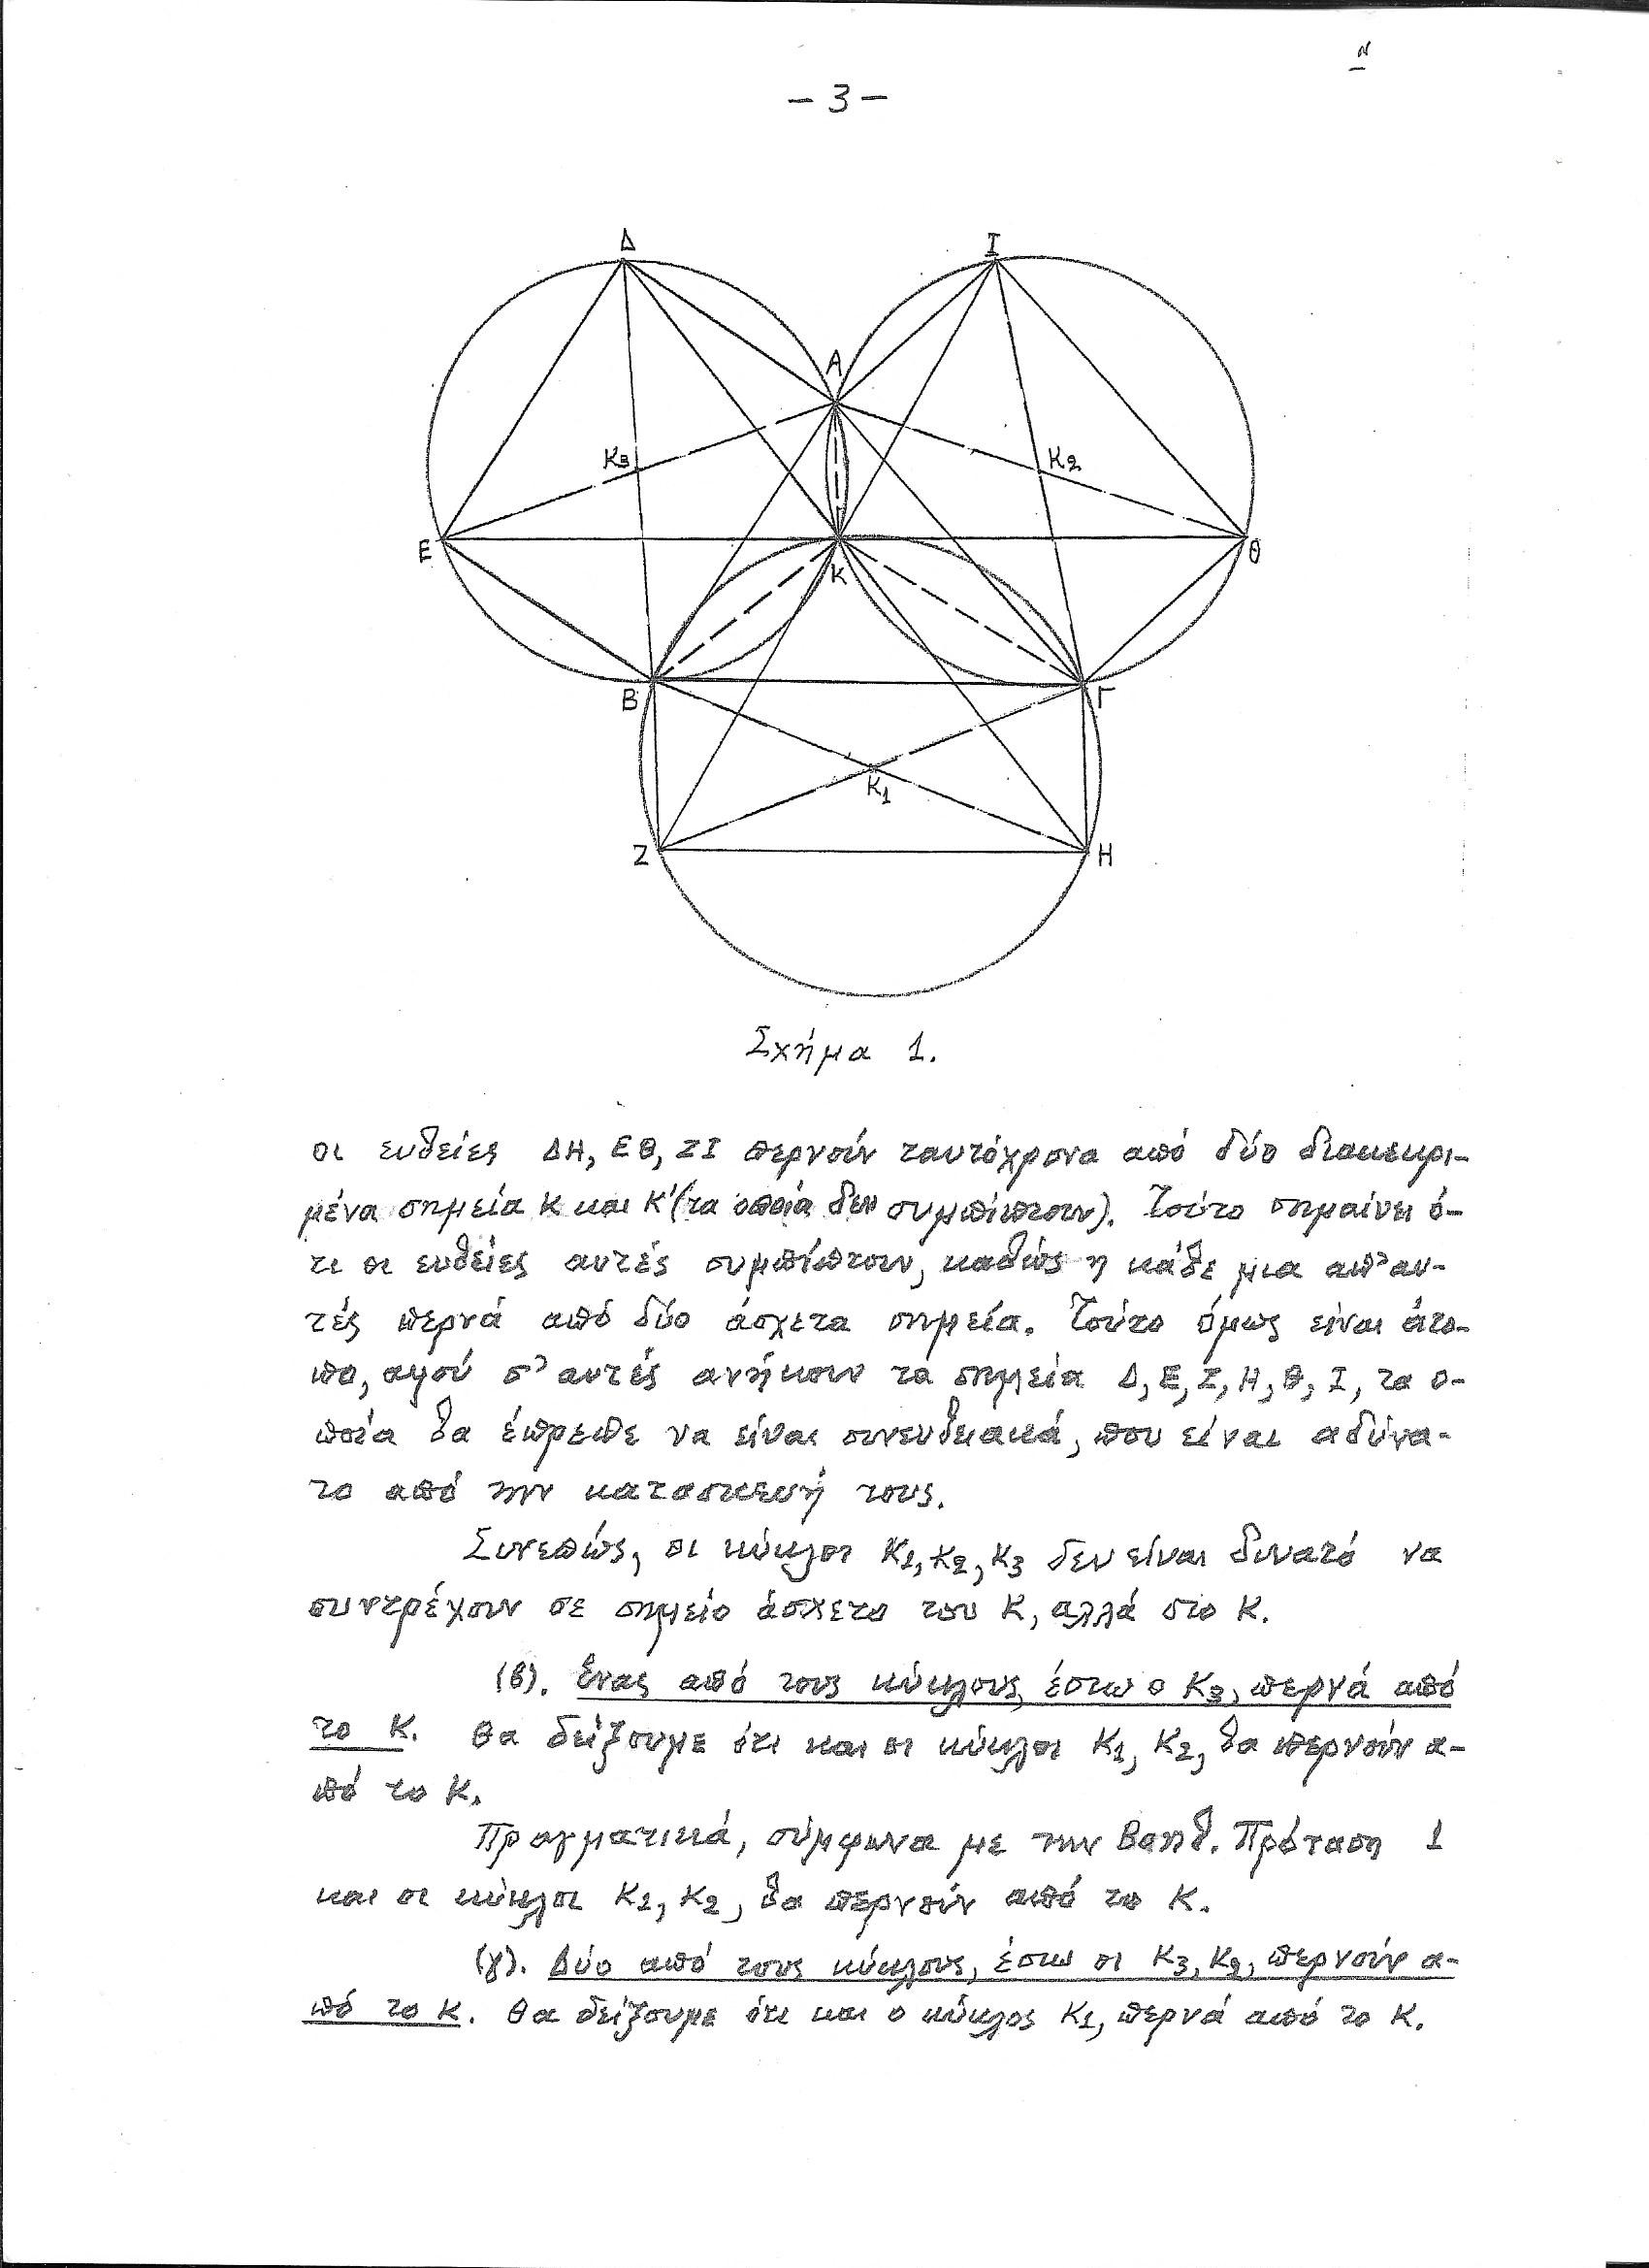 - 3 -
Δ
I
A
K3
K2
E
Θ
K
B
Γ
K1
Z
H
Σχήμα 1.
οι ευθείες ΔΗ, ΕΘ, ΖΙ περνούν ταυτόχρονα από δύο διακεκρι-
μένα σημεία Κ και Κ' (τα οποία δεν συμπίπτουν). Τούτο σημαίνει ό-
τι οι ευθείες αυτές συμπίπτουν, καθώς η κάθε μια απ' αυ-
τές περνά από δύο άσχετα σημεία. Τούτο όμως είναι άτο-
πο, αφού σ' αυτές ανήκουν τα σημεία Δ, Ε, Ζ, Η, Θ, Ι, τα ο-
ποία θα έπρεπε να είναι συνευθειακά, που είναι αδύνα-
το από την κατασκευή τους.
Συνεπώς, οι κύκλοι Κ1, Κ2, Κ3 δεν είναι δυνατό να
συντρέχουν σε σημείο άσχετο του Κ, αλλά στο Κ.
(β). Ένας από τους κύκλους, έστω ο Κ3, περνά από
το Κ. Θα δείξουμε ότι και οι κύκλοι Κ1, Κ2, θα περνούν α-
πό το Κ.
Πραγματικά, σύμφωνα με την Βοηθ. Πρόταση 1
και οι κύκλοι Κ1, Κ2, θα περνούν από το Κ.
(γ). Δύο από τους κύκλους, έστω οι Κ3, Κ2, περνούν α-
πό το Κ. Θα δείξουμε ότι και ο κύκλος Κ1, περνά από το Κ.